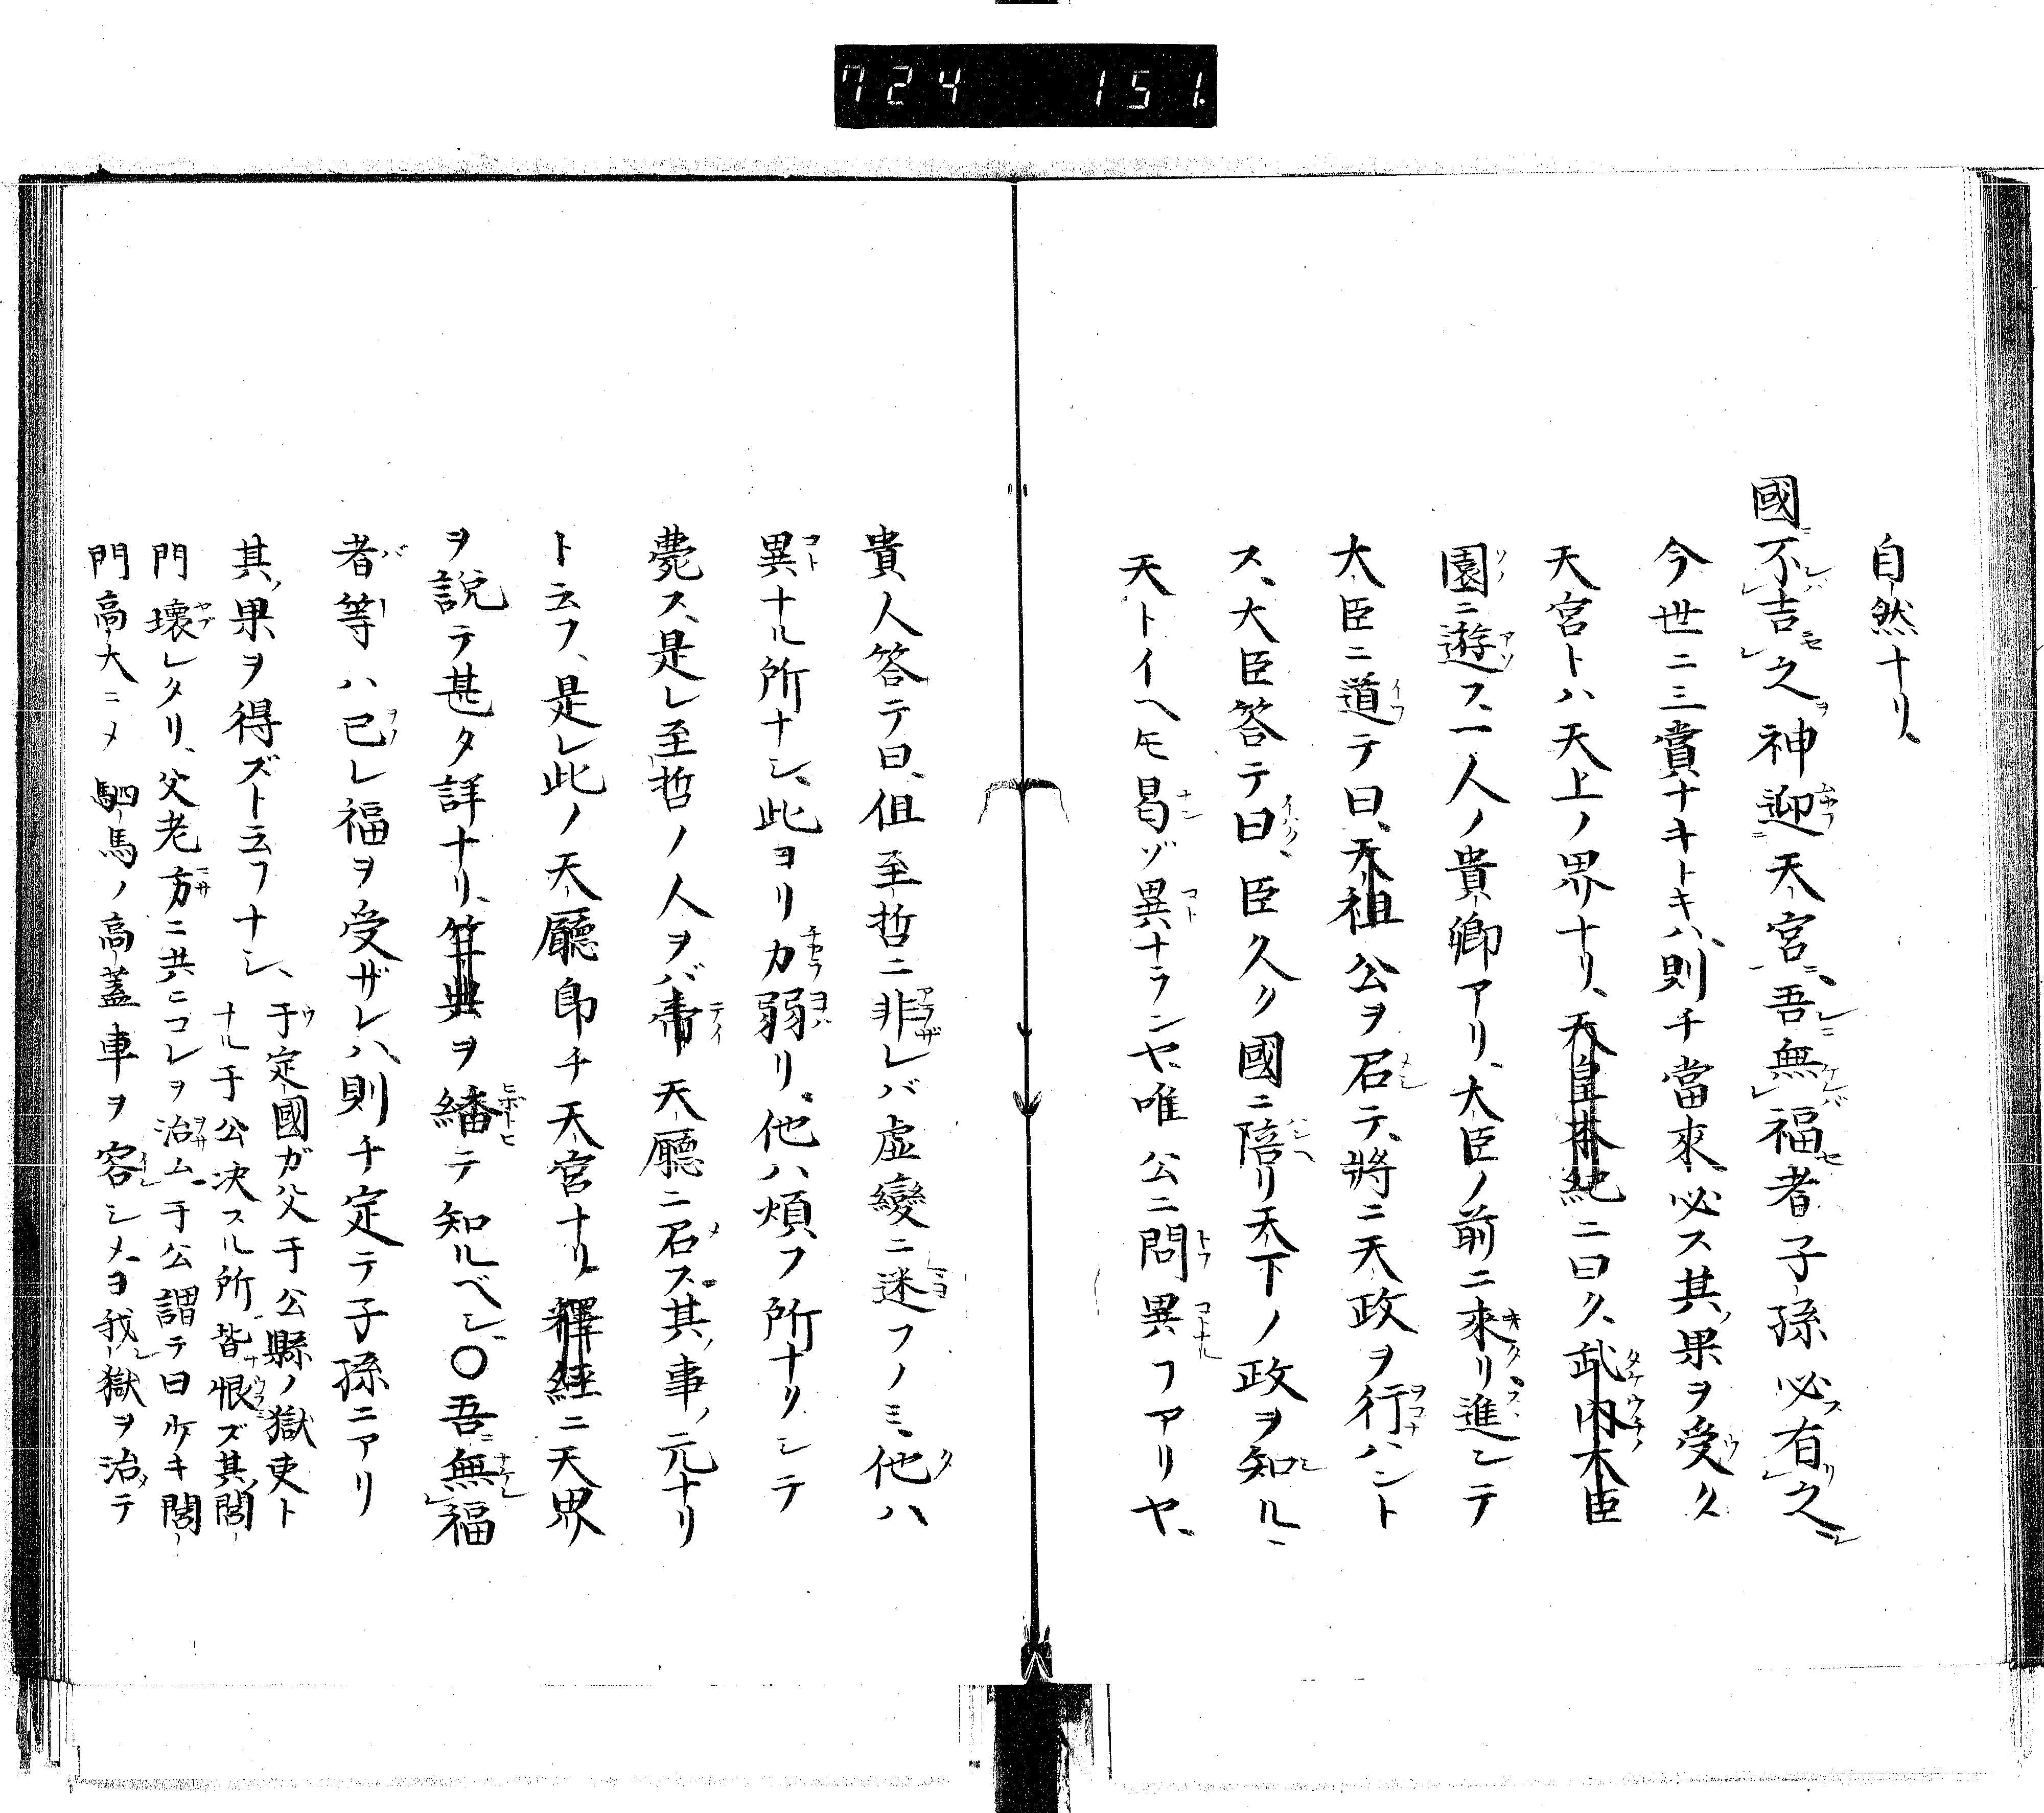 724 151.
自然ナリ、
國不吉之神迎天宮、吾無福者子孫必有之
今世ニ三賞ナキトキハ、則チ當來必ス其ノ果ヲ受ク
天宮トハ天上ノ界ナリ、天皇本紀ニ曰ク、武内大臣
園ニ遊フ、一人ノ貴卿アリ、大臣ノ前ニ來リ進ンテ
大臣ニ道テ曰、天祖公ヲ召テ、將ニ天政ヲ行ハント
ス、大臣答テ曰、臣久ク國ニ陪リ天下ノ政ヲ知ル、
天トイヘモ曷ゾ異ナランヤ、唯公ニ問異フアリヤ、
貴人答テ曰、但至哲ニ非レバ虛變ニ迷フノミ、他ハ
異ナル所ナシ、此ヨリ力弱リ、他ハ煩フ所ナリシテ
薨ス、是レ至哲ノ人ヲバ帝天廳ニ召ス其ノ事ノ元ナリ
ト云フ、是レ此ノ天廳即チ天宮ナリ、釋經ニ天界
ヲ說テ甚タ詳ナリ、竺典ヲ繙テ知ルベシ、〇吾無福
者等ハ己レ福ヲ受ザレハ、則チ定テ子孫ニアリ
其ノ果ヲ得ズト云フナシ、于定國ガ父于公縣ノ獄吏ト
ナル于公決スル所皆恨ズ其ノ閭
門壞レタリ、父老方ニ共ニコレヲ治ム、于公謂テ曰少キ閭
門高大ニメ駟馬ノ高蓋車ヲ容シメヨ我獄ヲ治テ